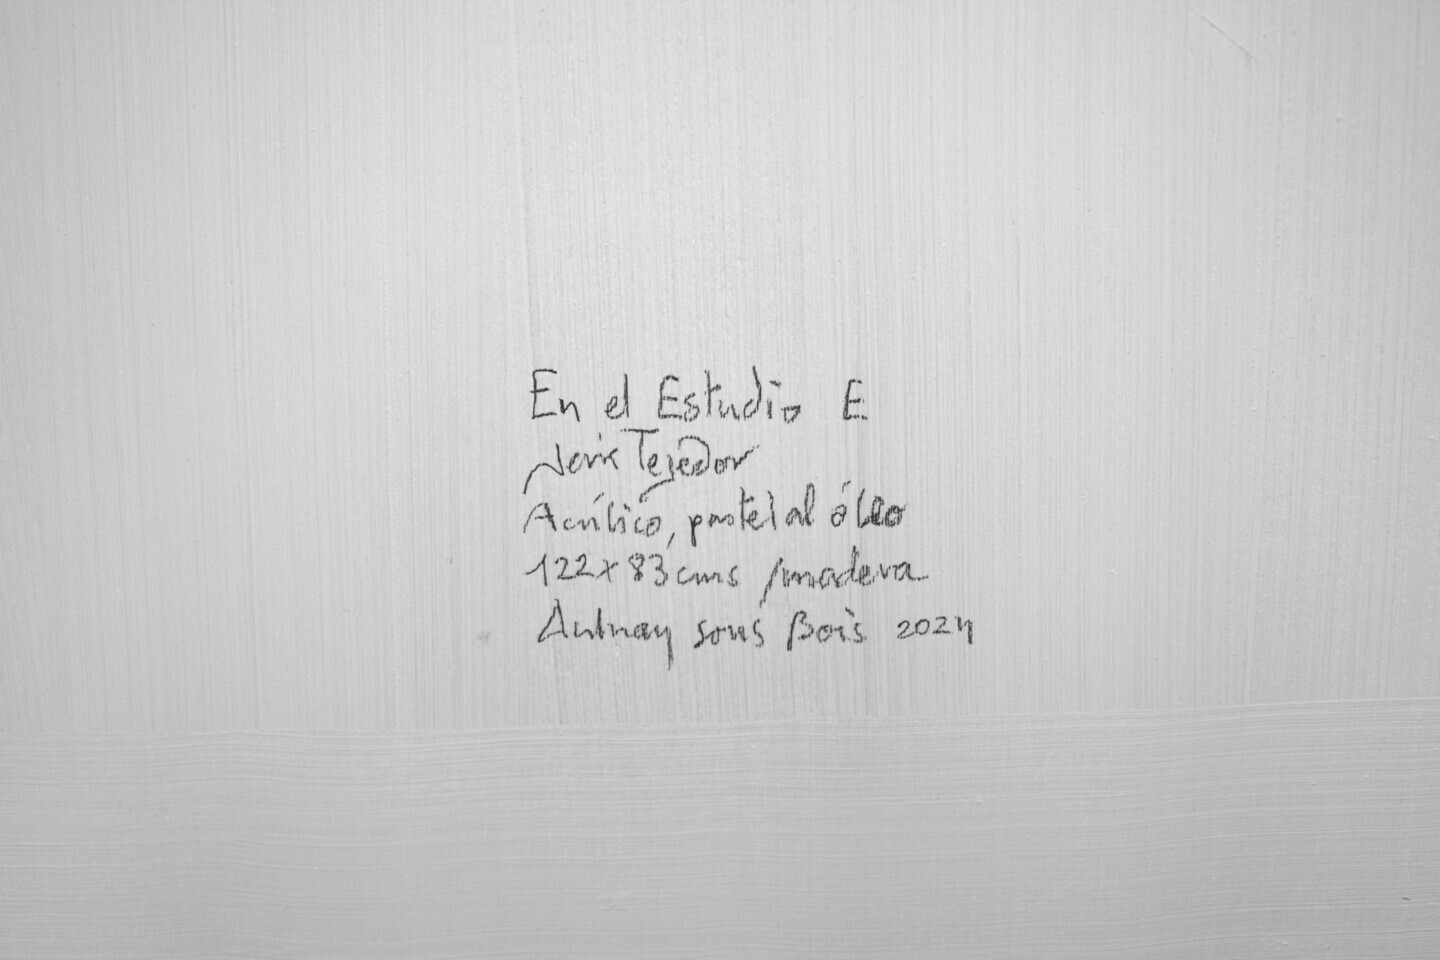 En el Estudio E
Tejedor
Acrílico, pastel al óleo
122x83cms /madera
Aulnay sous Bois 2024